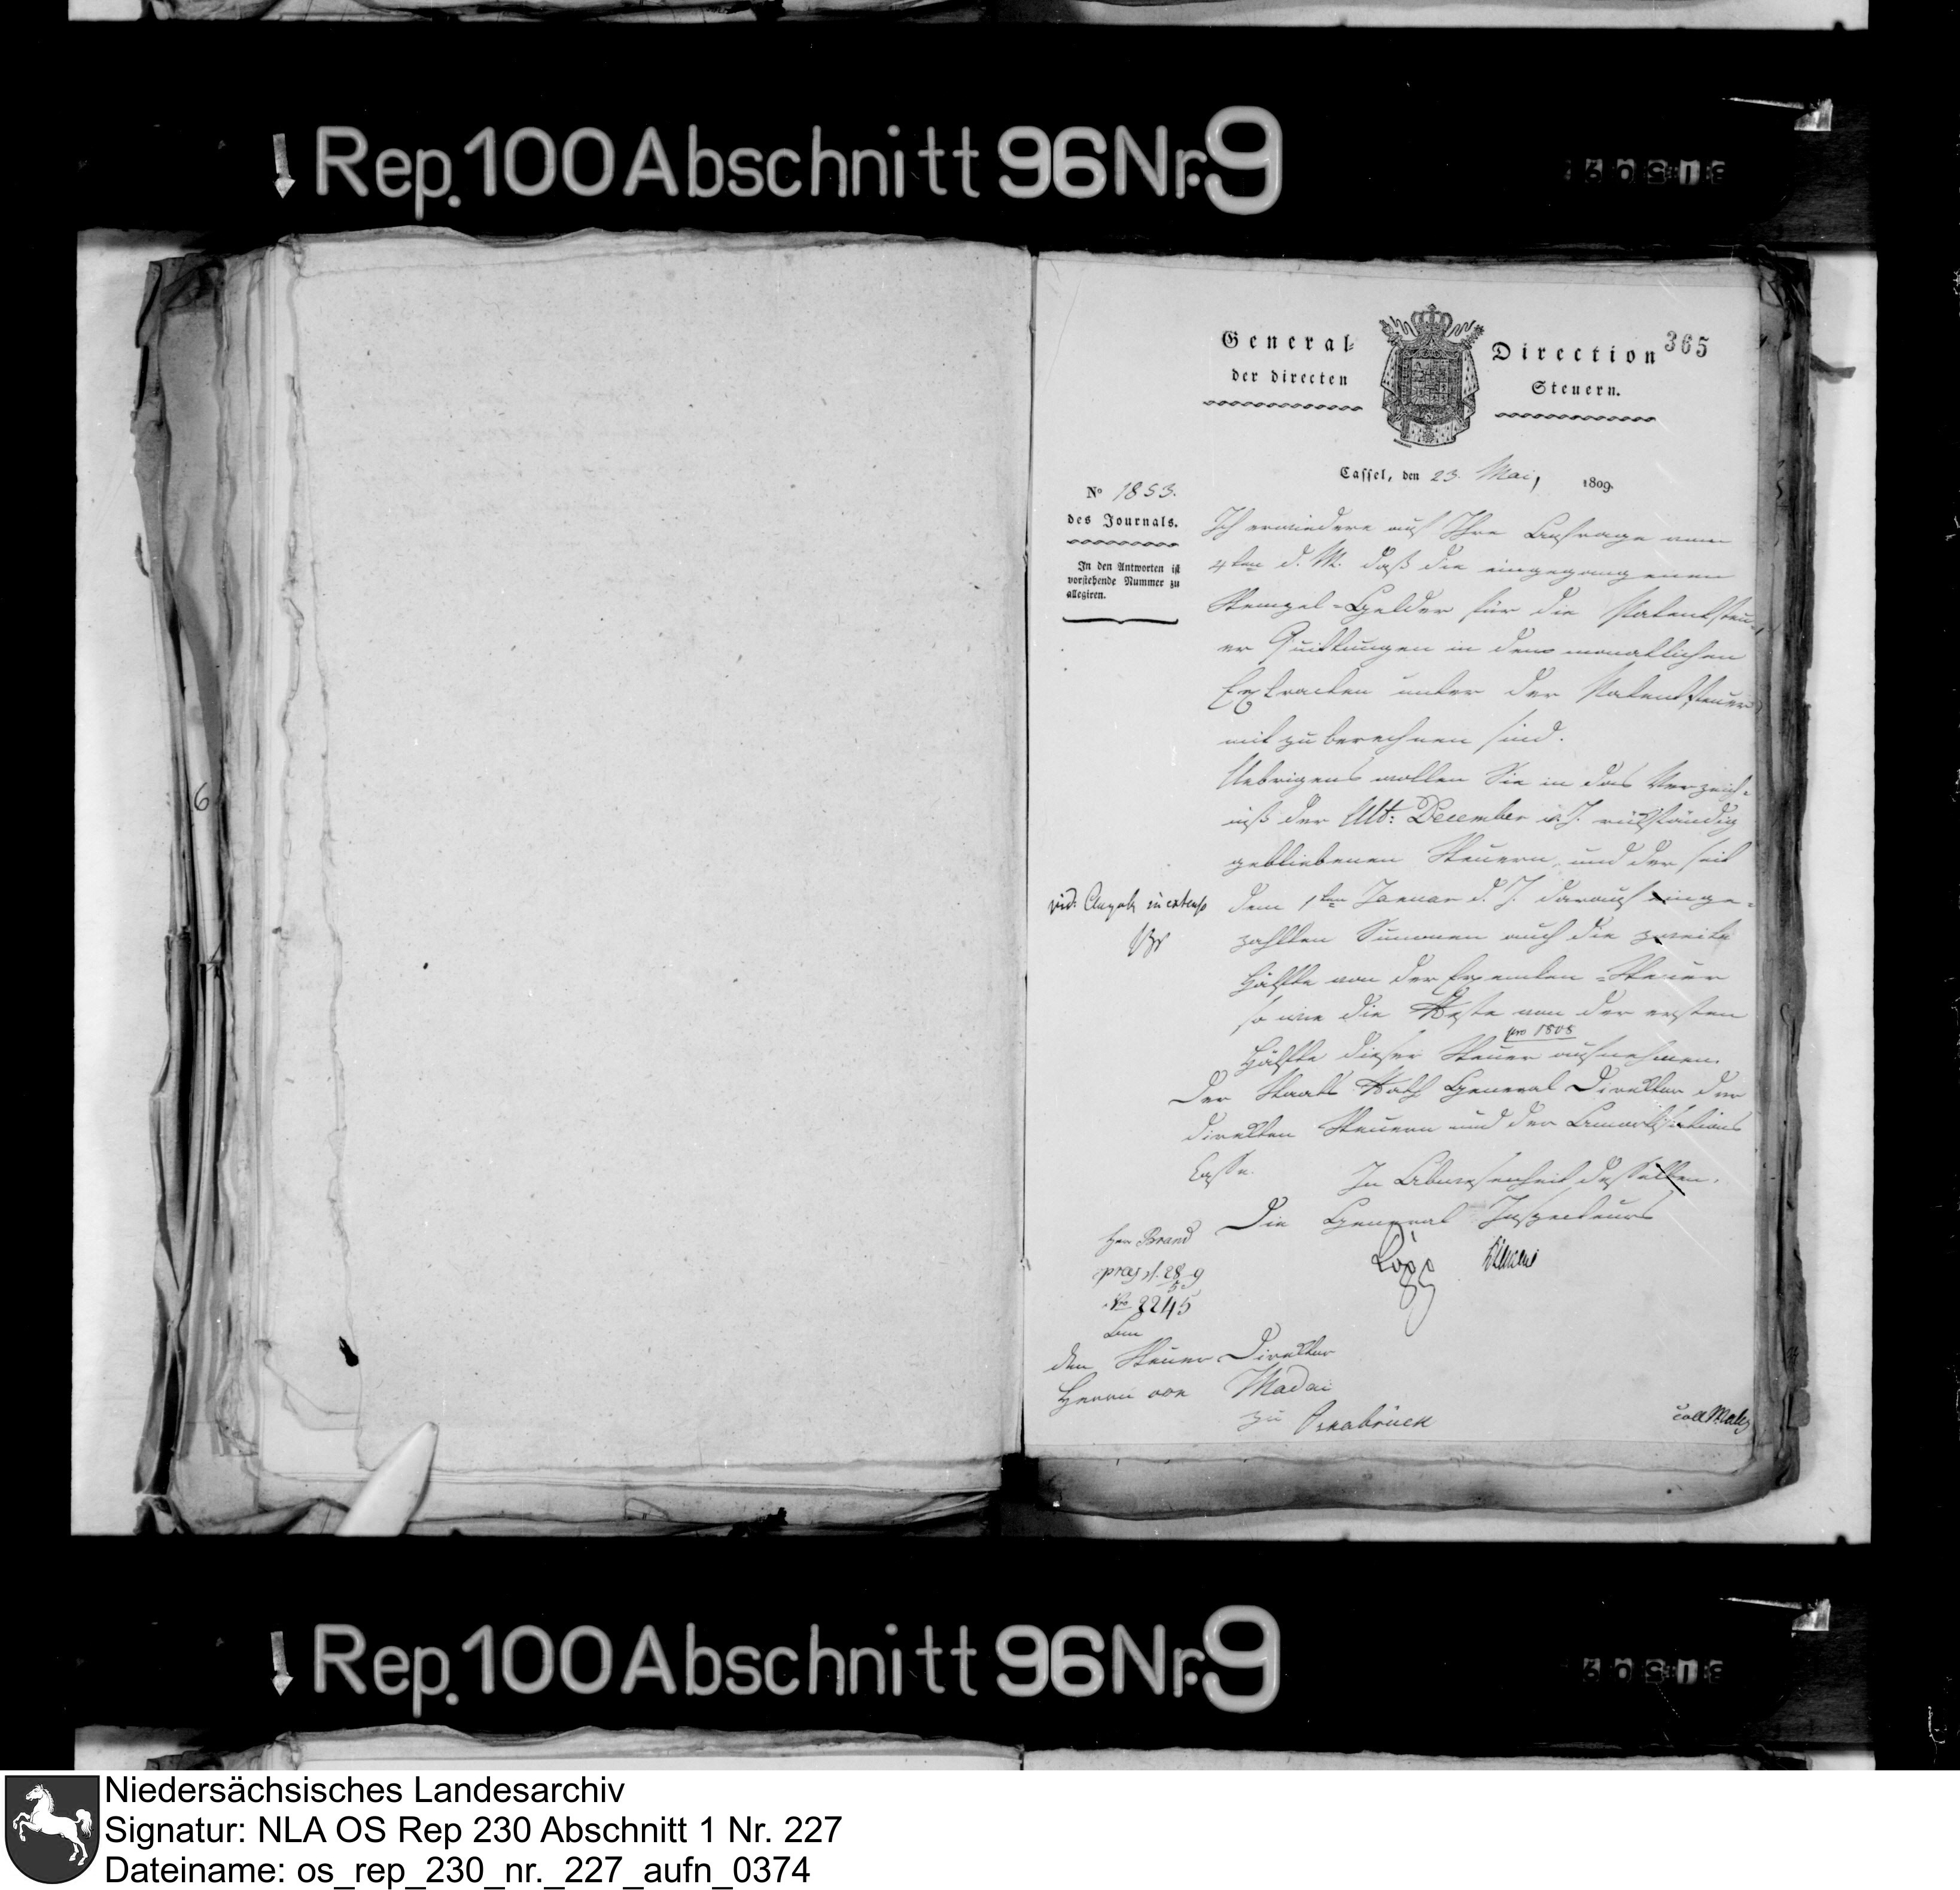 Rep. 100 Abschnitt 96 Nr. 9
365
General- Direction
der directen Steuern.
Cassel, den 23. Mai, 1809.
No 1853.
des Journals.
In den Antworten ist
vorstehende Nummer zu
allegiren.
Ich erwiedere auf Ihre Anfrage vom
4ten d. M. daß die eingegangenen
Stempel-Gelder für die Patentsteu-
er Quittungen in den monatlichen
Extracten unter der Patentsteuer
mit zu berechnen sind.
Uebrigens wollen Sie in das Verzeich-
niß der Ult: December v. J. rückständig
gebliebenen Steuern, und der seit
dem 1ten Januar d. J. darauf einge-
zahlten Summen auch die zweite
Hälfte von der Exemten-Steuer
so wie die Reste von der ersten
Hälfte dieser Steuer pro 1808 aufnehmen.
vid. in extenso
Der Staats Rath General Direktor der
direkten Steuern und der Amortisations
Casse.
In Abwesenheit desselben.
Die General Inspecteurs
Herr Brand
praes. d. 28/5 9
No 2245
An
den Steuer Direktor
Herrn von Madai
zu Osnabrück
6
Rep. 100 Abschnitt 96 Nr. 9
Niedersächsisches Landesarchiv
Signatur: NLA OS Rep 230 Abschnitt 1 Nr. 227
Dateiname: os_rep_230_nr._227_aufn_0374